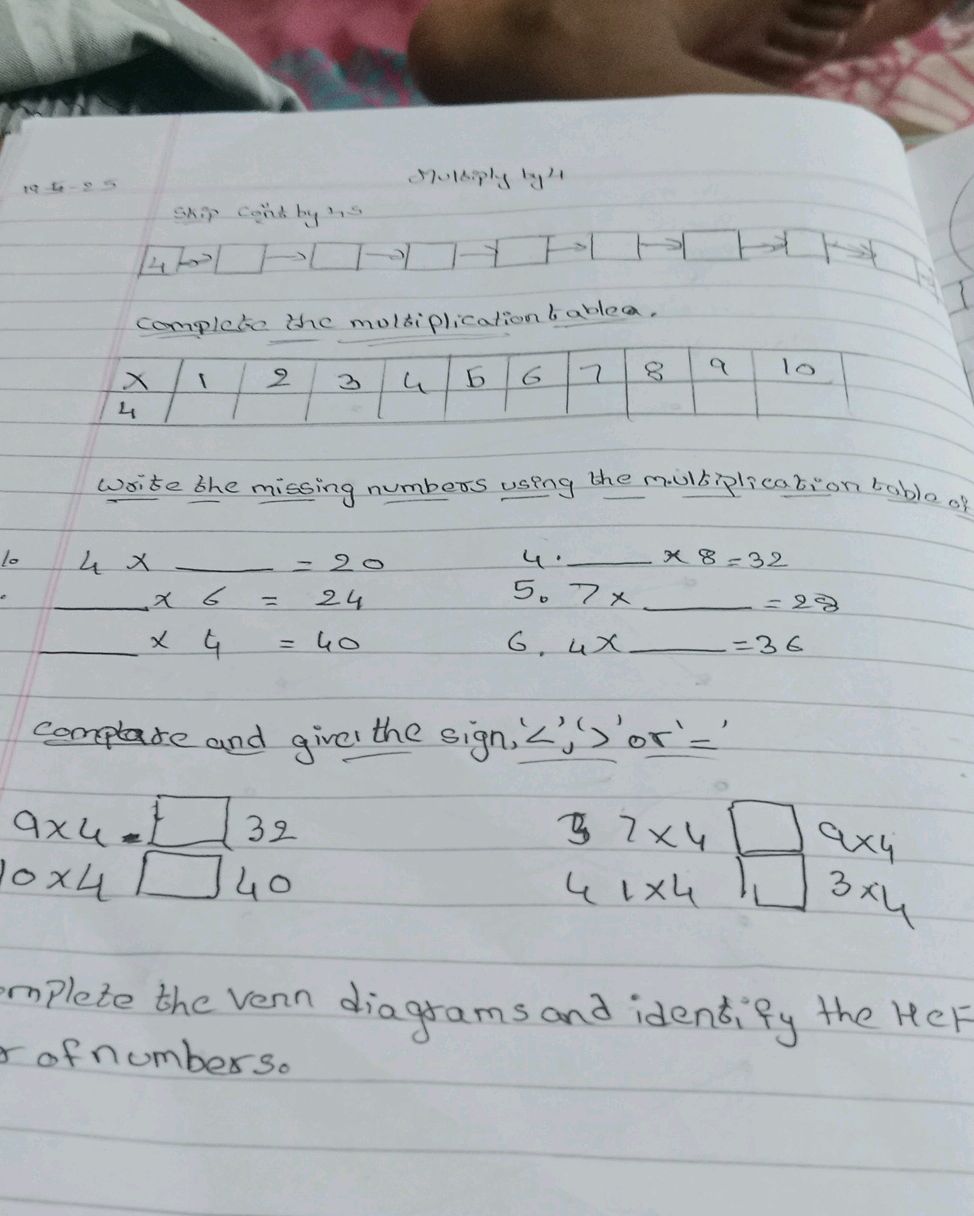 19-5-25
Multiply by 4
Skip count by 4s
4
Complete the multiplication table.
X 1 2 3 4 5 6 7 8 9 10
4
Write the missing numbers using the multiplication table of
1. 4 x ____ = 20 4. ____ x 8 = 32
____ x 6 = 24 5. 7 x ____ = 28
____ x 4 = 40 6. 4 x ____ = 36
Compare and give the sign, '<', '>' or '='
9x4 32 3 7x4 9x4
10x4 40 4 1x4 3x4
omplete the venn diagrams and identify the HCF
of numbers.